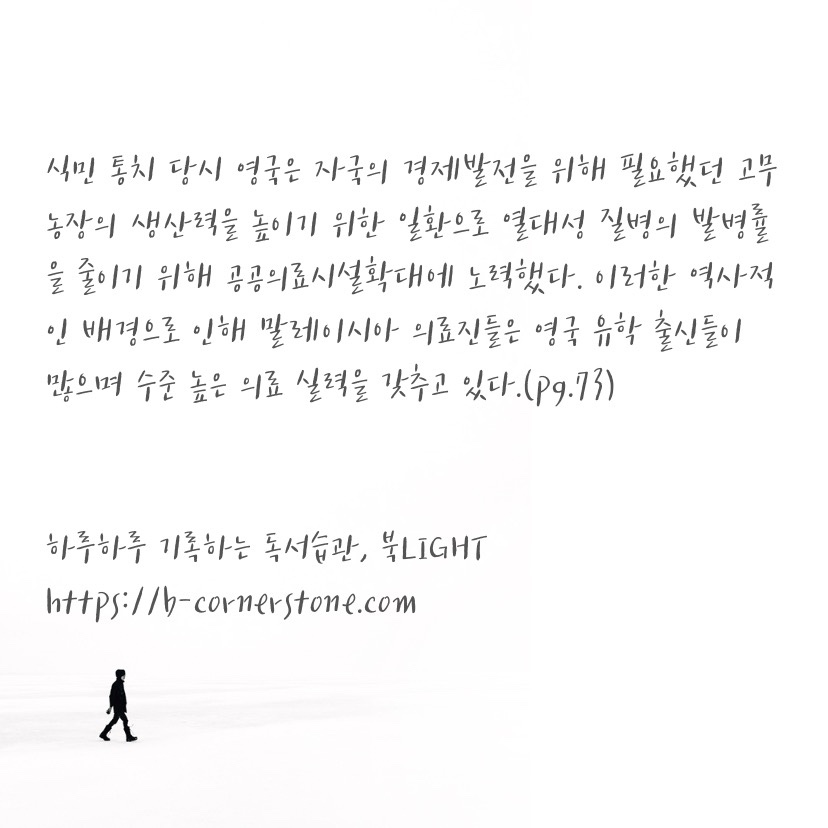 식민 통치 당시 영국은 자국의 경제발전을 위해 필요했던 고무
농장의 생산력을 높이기 위한 일환으로 열대성 질병의 발병률
을 줄이기 위해 공공의료시설확대에 노력했다. 이러한 역사적
인 배경으로 인해 말레이시아 의료진들은 영국 유학 출신들이
많으며 수준 높은 의료 실력을 갖추고 있다.(pg.73)
하루하루 기록하는 독서습관, 북LIGHT
https://b-cornerstone.com